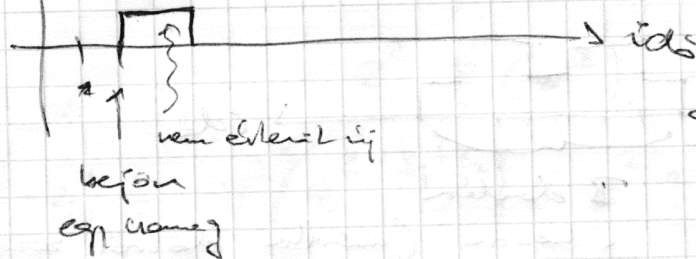 idő
nem érkezik új
bejön
egy csomag